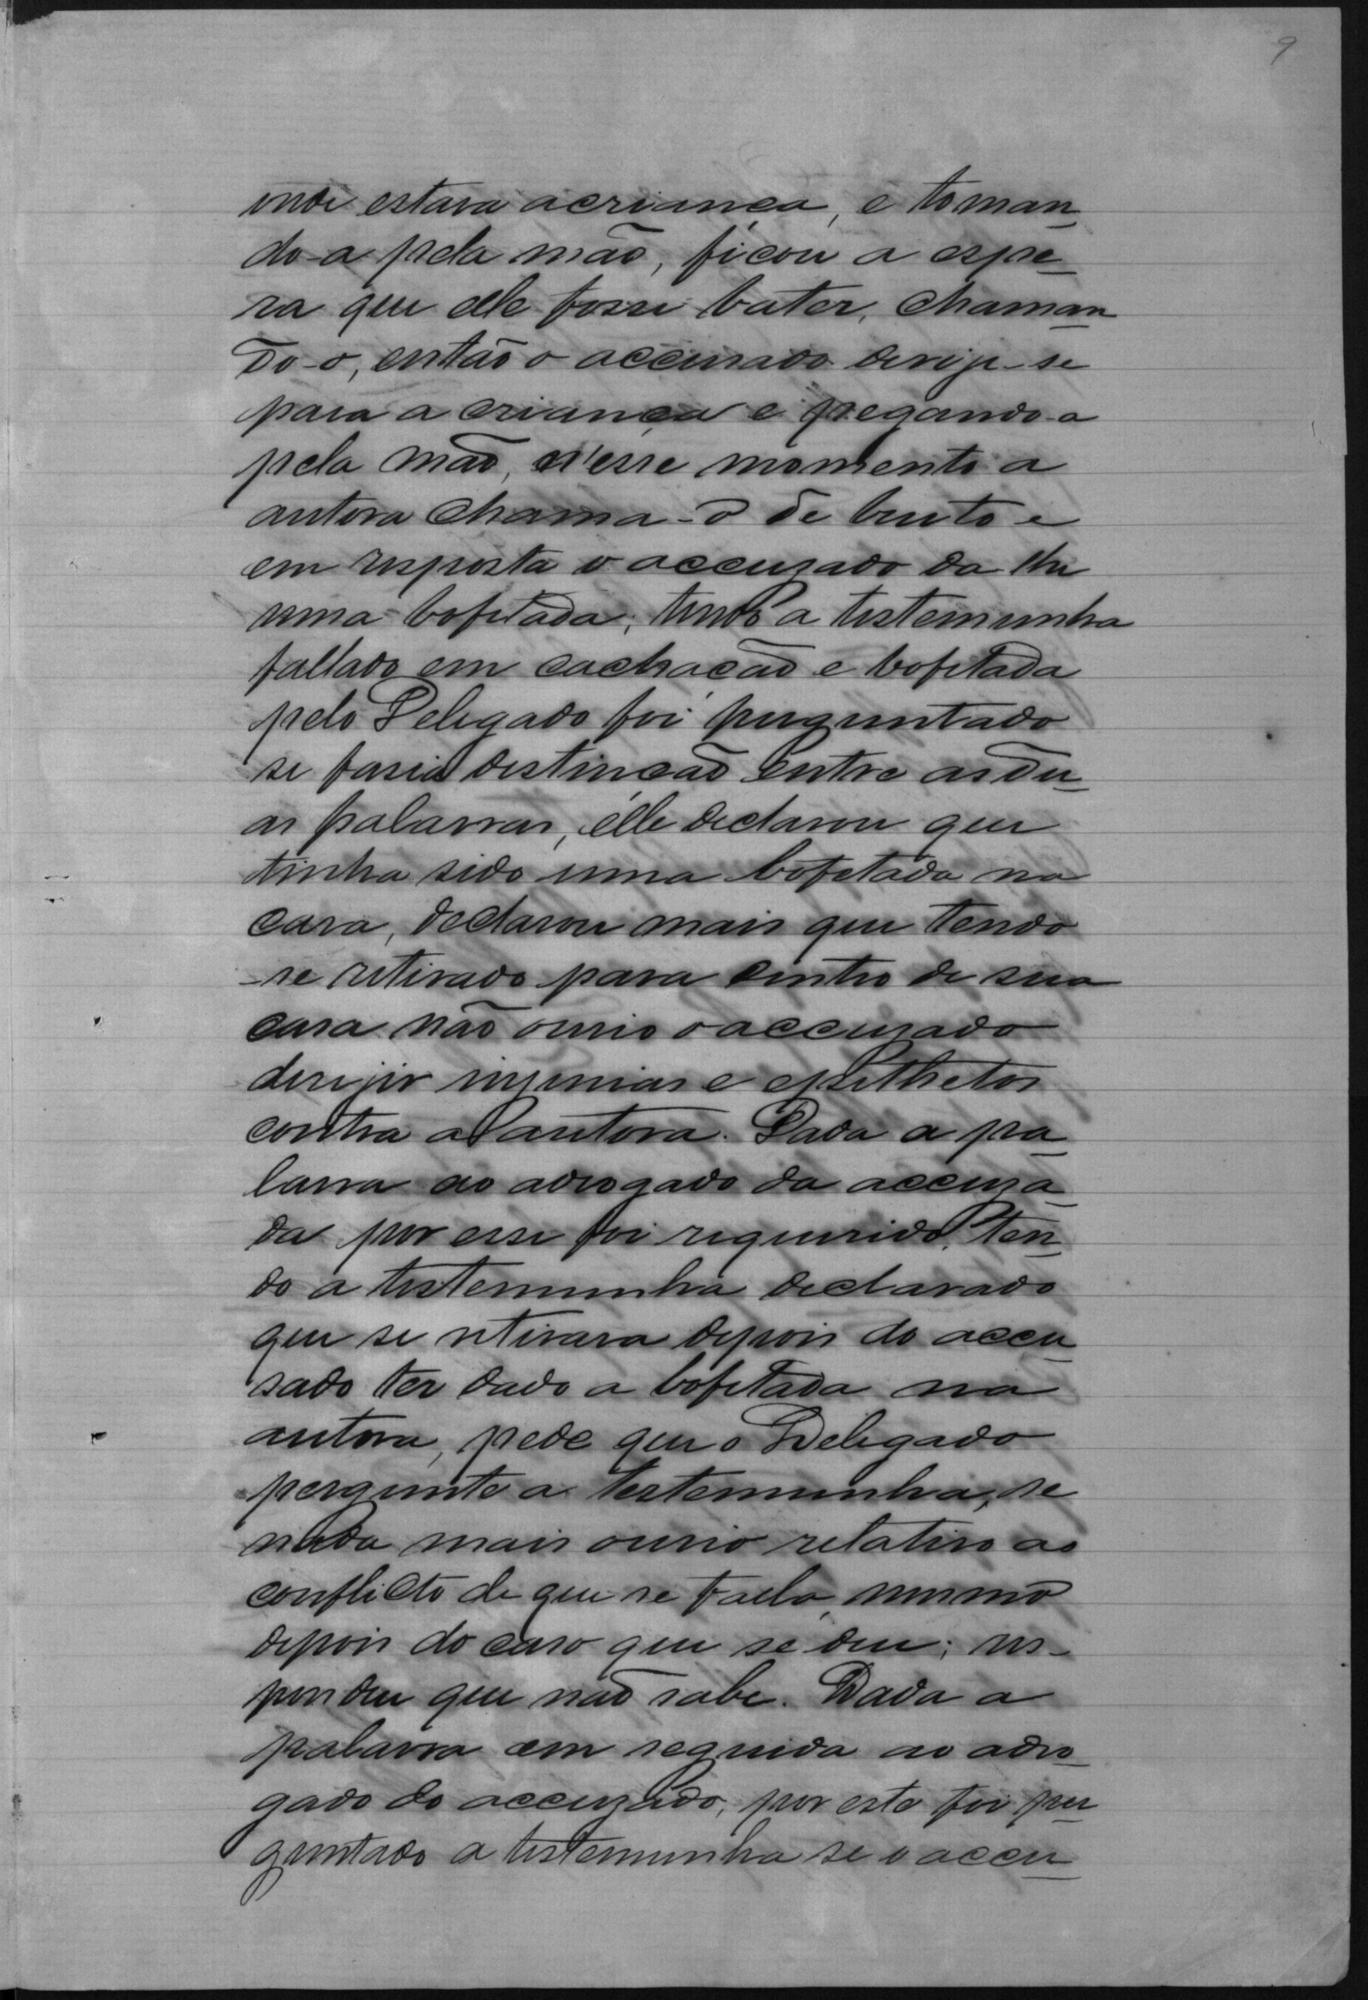 9
onde estava a criança, e toman
do-a pela mão, ficou a espe
ra que elle fosse bater, chaman
do-o, então o accusado derije-se
para a criança e pegando-a
pela mão, n'esse momento a
autora chama-o de bruto e
em resposta o accuzado da lhe
uma bofetada; tendo a testemunha
fallado em cachação e bofetada
pelo Delegado foi perguntado
se fasia destincão entre as du
as palavras, élle declarou que
tinha sido uma bofetada na
cara, declarou mais que tendo
-se retirado para dentro de sua
casa não ouvio o accuzado
derijir injurias e epithetos
contra a autora. Dada a pa
lavra ao advogado da accuza
da por esse foi requerido, ten
do a testemunha declarado
que se retirara depois do accu
sado ter dado a bofetada na
autora, pede que o Delegado
pergunte a testemunha, se
nada mais ouvio relativo ao
conflicto de que se falla, mesmo
depois do caso que se deu; res-
pondeu que não sabe. Dada a
palavra em seguida ao advo
gado do accuzado, por este foi per
guntado a testemunha se o accu